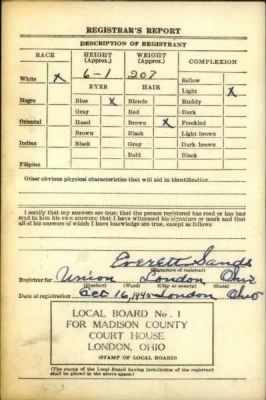 REGISTRAR'S REPORT
DESCRIPTION OF REGISTRANT
RACE HEIGHT (Approx.) WEIGHT (Approx.) COMPLEXION
6-1 207 Sallow
White X EYES HAIR Light X
Negro Blue X Blonde Ruddy
Gray Red Dark
Oriental Hazel Brown X Freckled
Brown Black Light brown
Indian Black Gray Dark brown
Bald Black
Filipino
Other obvious physical characteristics that will aid in identification
I certify that my answers are true; that the person registered has read or has had read to him his own answers; that I have witnessed his signature or mark and that all of his answers of which I have knowledge are true, except as follows:
Everett Sands
(Signature of registrar)
Registrar for Union London Ohio
(Precinct) (Ward) (City or county) (State)
Date of registration Oct 16, 1940 London Ohio
LOCAL BOARD No. 1
FOR MADISON COUNTY
COURT HOUSE
LONDON, OHIO
(STAMP OF LOCAL BOARD)
(The stamp of the Local Board having jurisdiction of the registrant shall be placed in the above space.)